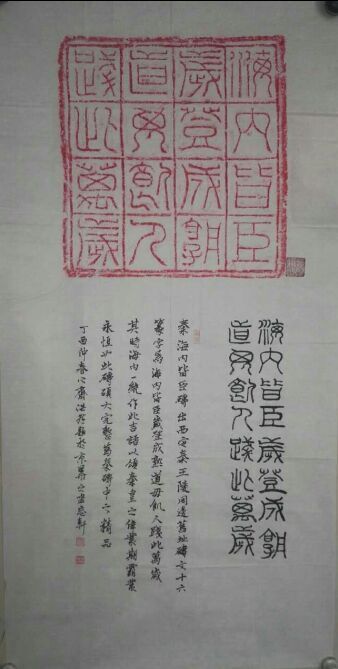 海内皆臣
歲登成孰
道毋飢人
踐此萬歲
海内皆臣歲登成孰
道毋飢人踐此萬歲
秦海内皆臣磚出西安秦王陵周邊舊址磚文十六
篆字爲海内皆臣歲登成熟道毋飢人踐此萬歲
其時海内一統作此吉語以頌秦皇之偉業期霸業
永恒如此磚碩大完整爲秦磚中之精品
丁酉仲春心齋浩題於京華之軒